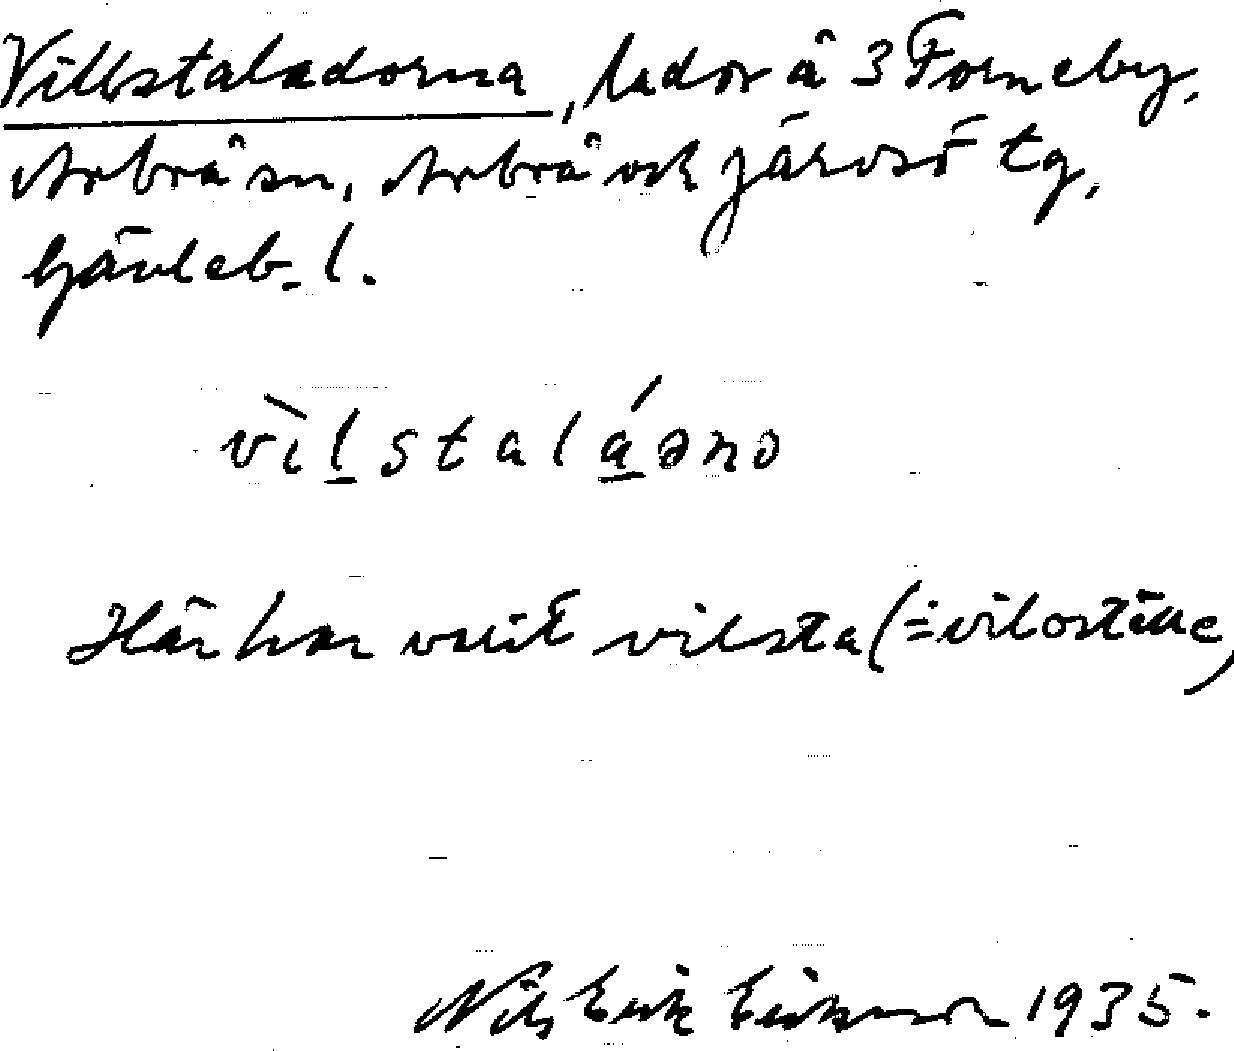 Villstaladorna, lador å 3 Forneby,
Arbrå sn, Arbrå och Järvsö tg,
Gävleb. l.
vìlstaláǝno
Här har varit vilsta (= viloställe)
Nils Erik Eriksson 1935.